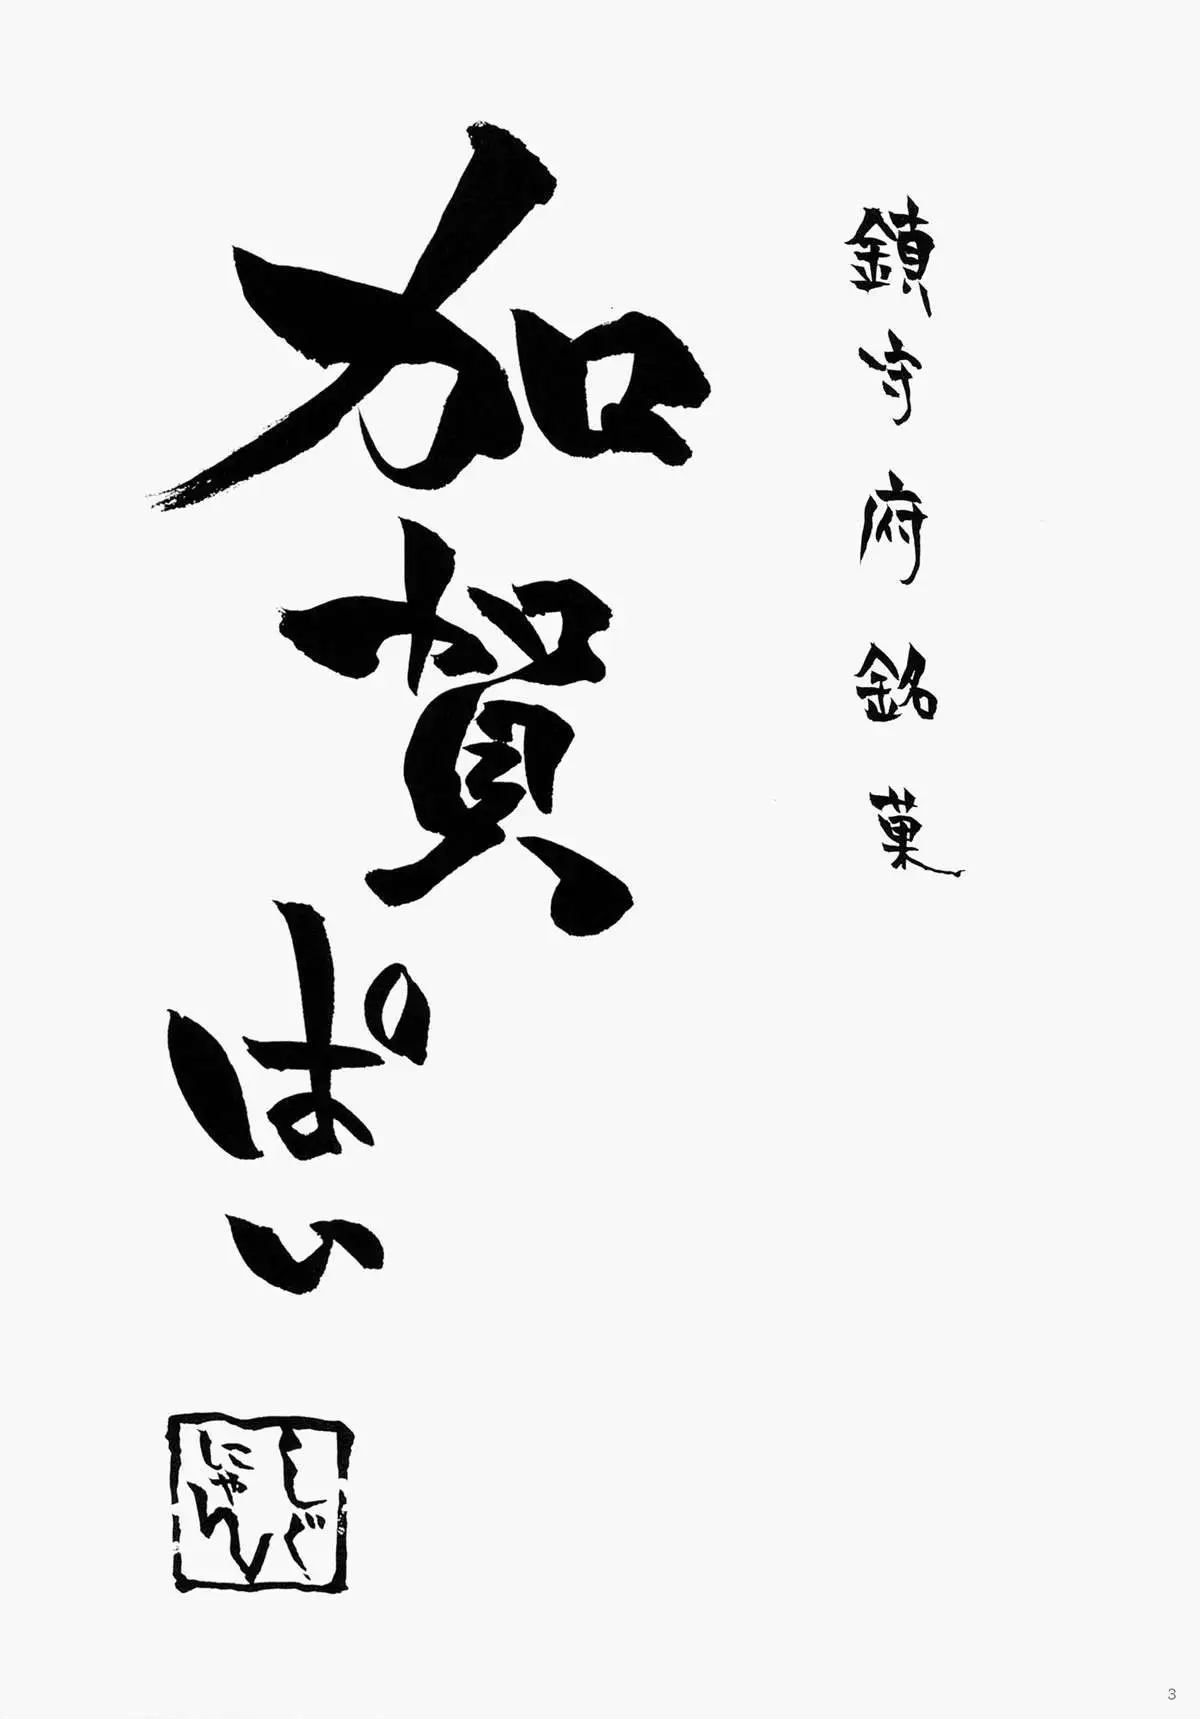 鎮守府銘菓
加賀ぱい
くしぐ
にゃん
3